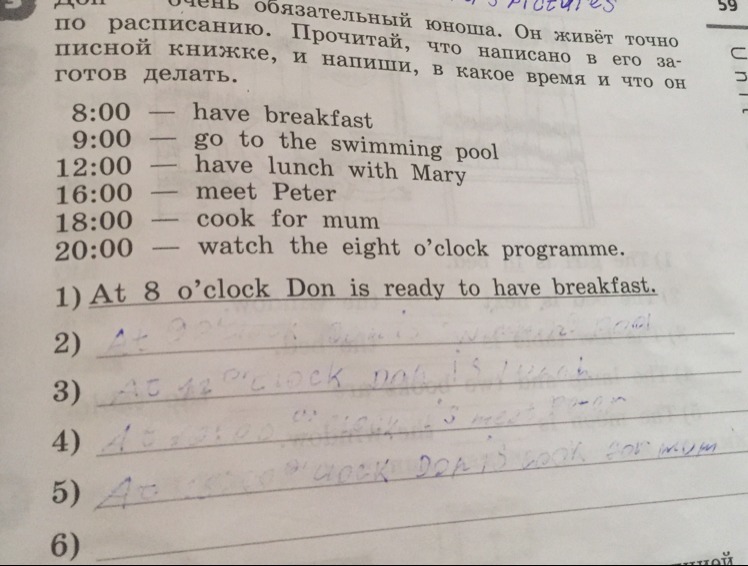 s pictures 59
Дон очень обязательный юноша. Он живёт точно
по расписанию. Прочитай, что написано в его за-
писной книжке, и напиши, в какое время и что он
готов делать.
8:00 — have breakfast
9:00 — go to the swimming pool
12:00 — have lunch with Mary
16:00 — meet Peter
18:00 — cook for mum
20:00 — watch the eight o'clock programme.
1) At 8 o'clock Don is ready to have breakfast.
2) At 9
3) At 12 o'clock Don is lunch
4) At is meet
5) At o'clock Don is cook for mum
6)